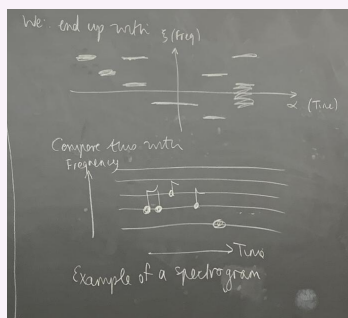 We end up with
ξ (Freq)
x (Time)
Compare this with
Frequency
Time
Example of a spectrogram